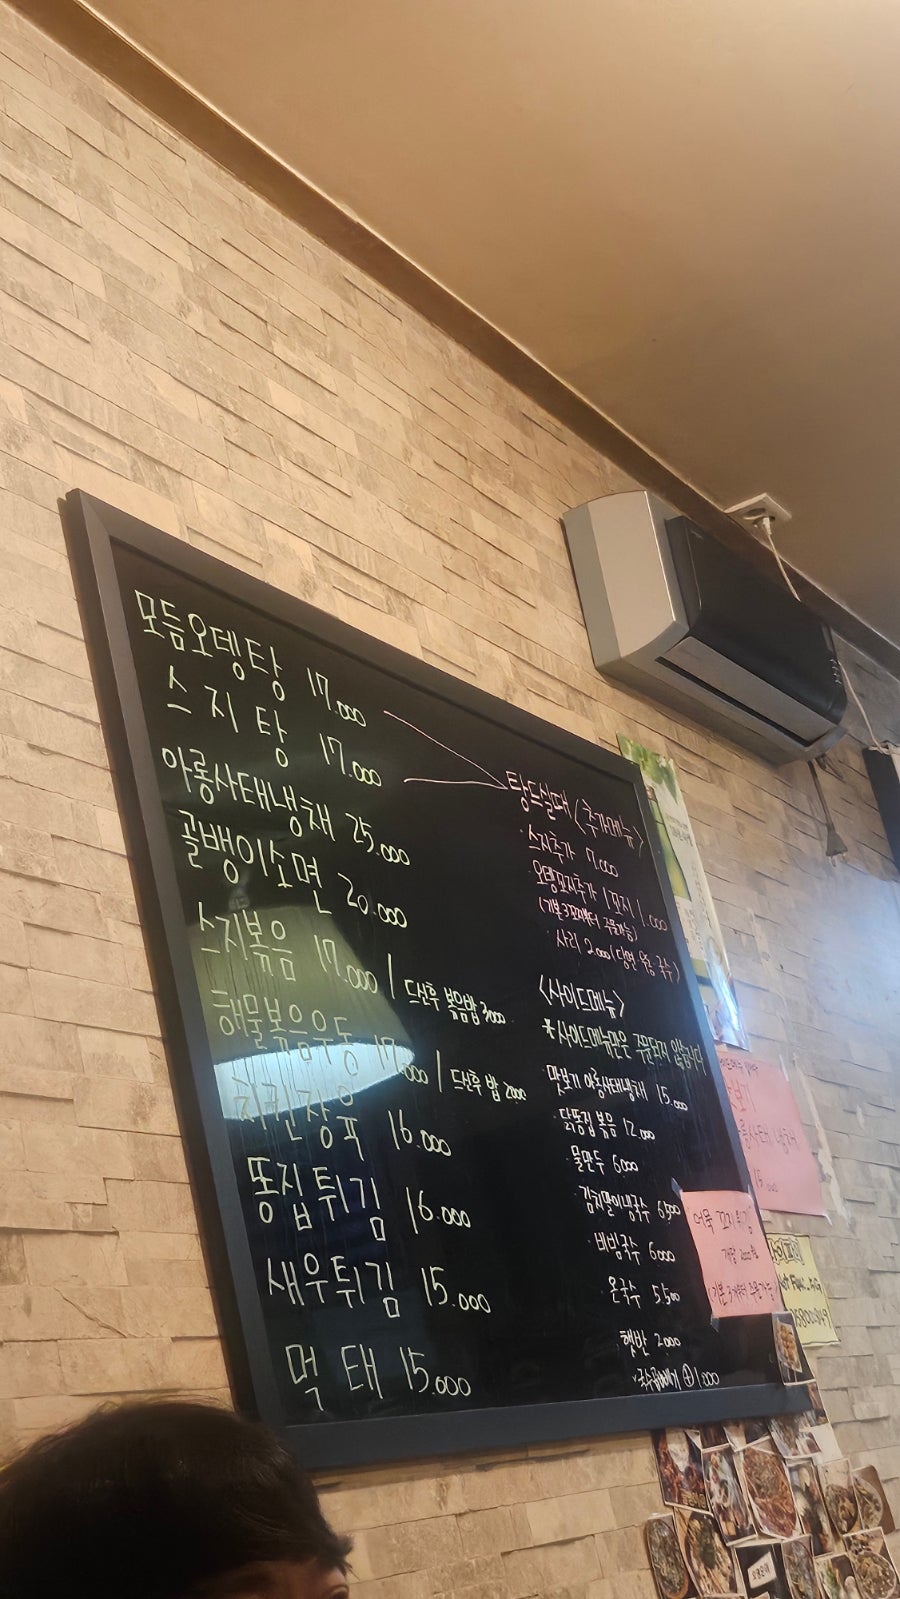 모듬오뎅탕 17.000
스지탕 17.000
아롱사태냉채 25.000
골뱅이소면 20.000
스지볶음 17.000 / 드신후 볶음밥 3000
해물볶음우동 17.000 / 드신후 밥 2000
치킨장육 16.000
똥집튀김 16.000
새우튀김 15.000
먹태 15.000
탕드실때 (추가메뉴)
· 스지추가 7.000
· 오뎅꼬지추가 1꼬지 1.000
(기본 3꼬지부터 주문가능)
· 사리 2.000 (당면 우동 국수)
<사이드메뉴>
*사이드메뉴만은 주문되지 않습니다
· 맛보기 아롱사태냉채 15.000
· 닭똥집볶음 12.000
· 물만두 6000
· 김치말이냉국수 6500
· 비빔국수 6000
· 온국수 5.500
· 햇반 2000
국수곱빼기 ⊕ 1.000
맛보기
아롱사태 냉채
15.000
어묵 꼬지 튀김
(기본 3개부터 주문가능)
와이파이